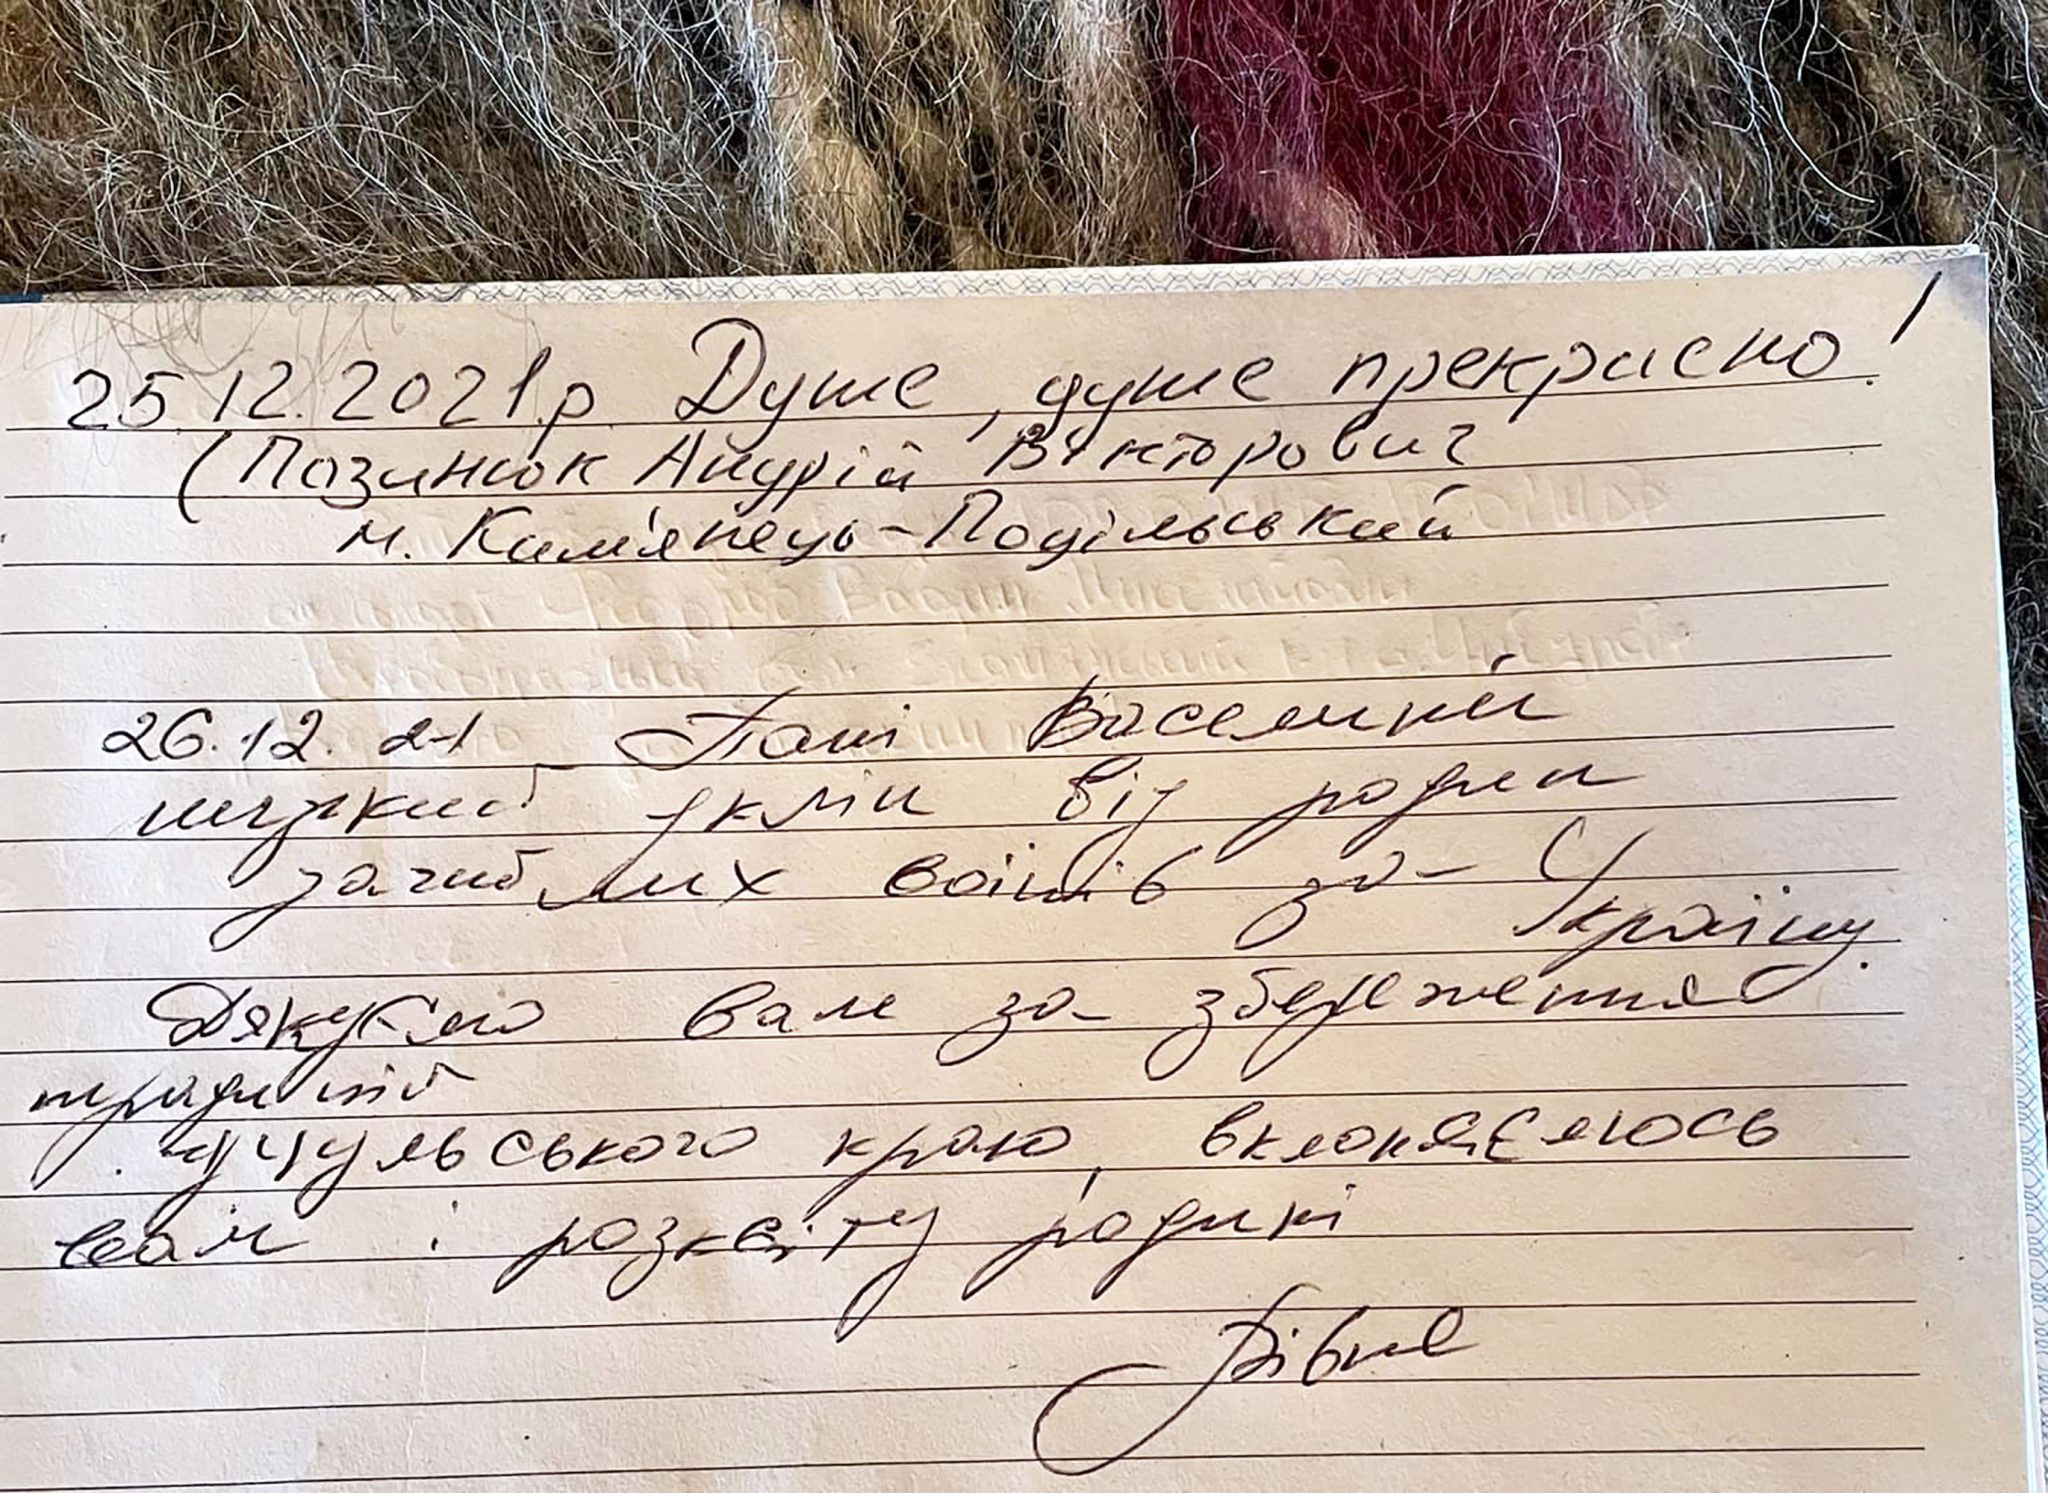 25.12.2021р. Дуже, дуже прекрасно!
(Позинюк Андрій Вікторович
м. Кам'янець-Подільський
26.12.21 Пані Василині
низький уклін від родин
загиблих воїнів за Україну.
Дякуємо вам за збереження
традицій
гуцульського краю, вклоняємось
вам і розквіту родині
Рівне